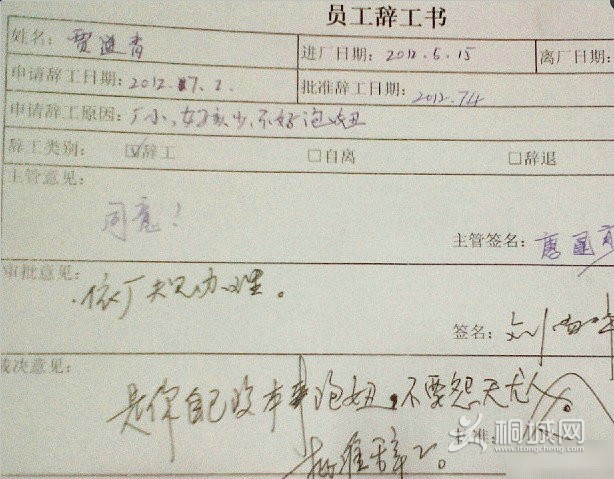 员工辞工书
姓名: 贾进青 进厂日期: 2012.5.15 离厂日期:
申请辞工日期: 2012.7.2. 批准辞工日期: 2012.7.4
申请辞工原因: 厂小,女孩少,不好泡妞
辞工类别: ☑辞工 □自离 □辞退
主管意见:
同意!
主管签名: 唐
审批意见:
依厂规办理。
签名: 刘
裁决意见:
是你自己没本事泡妞,不要怨天尤人。
批准:
批准辞工。
桐城网
www.itongcheng.com